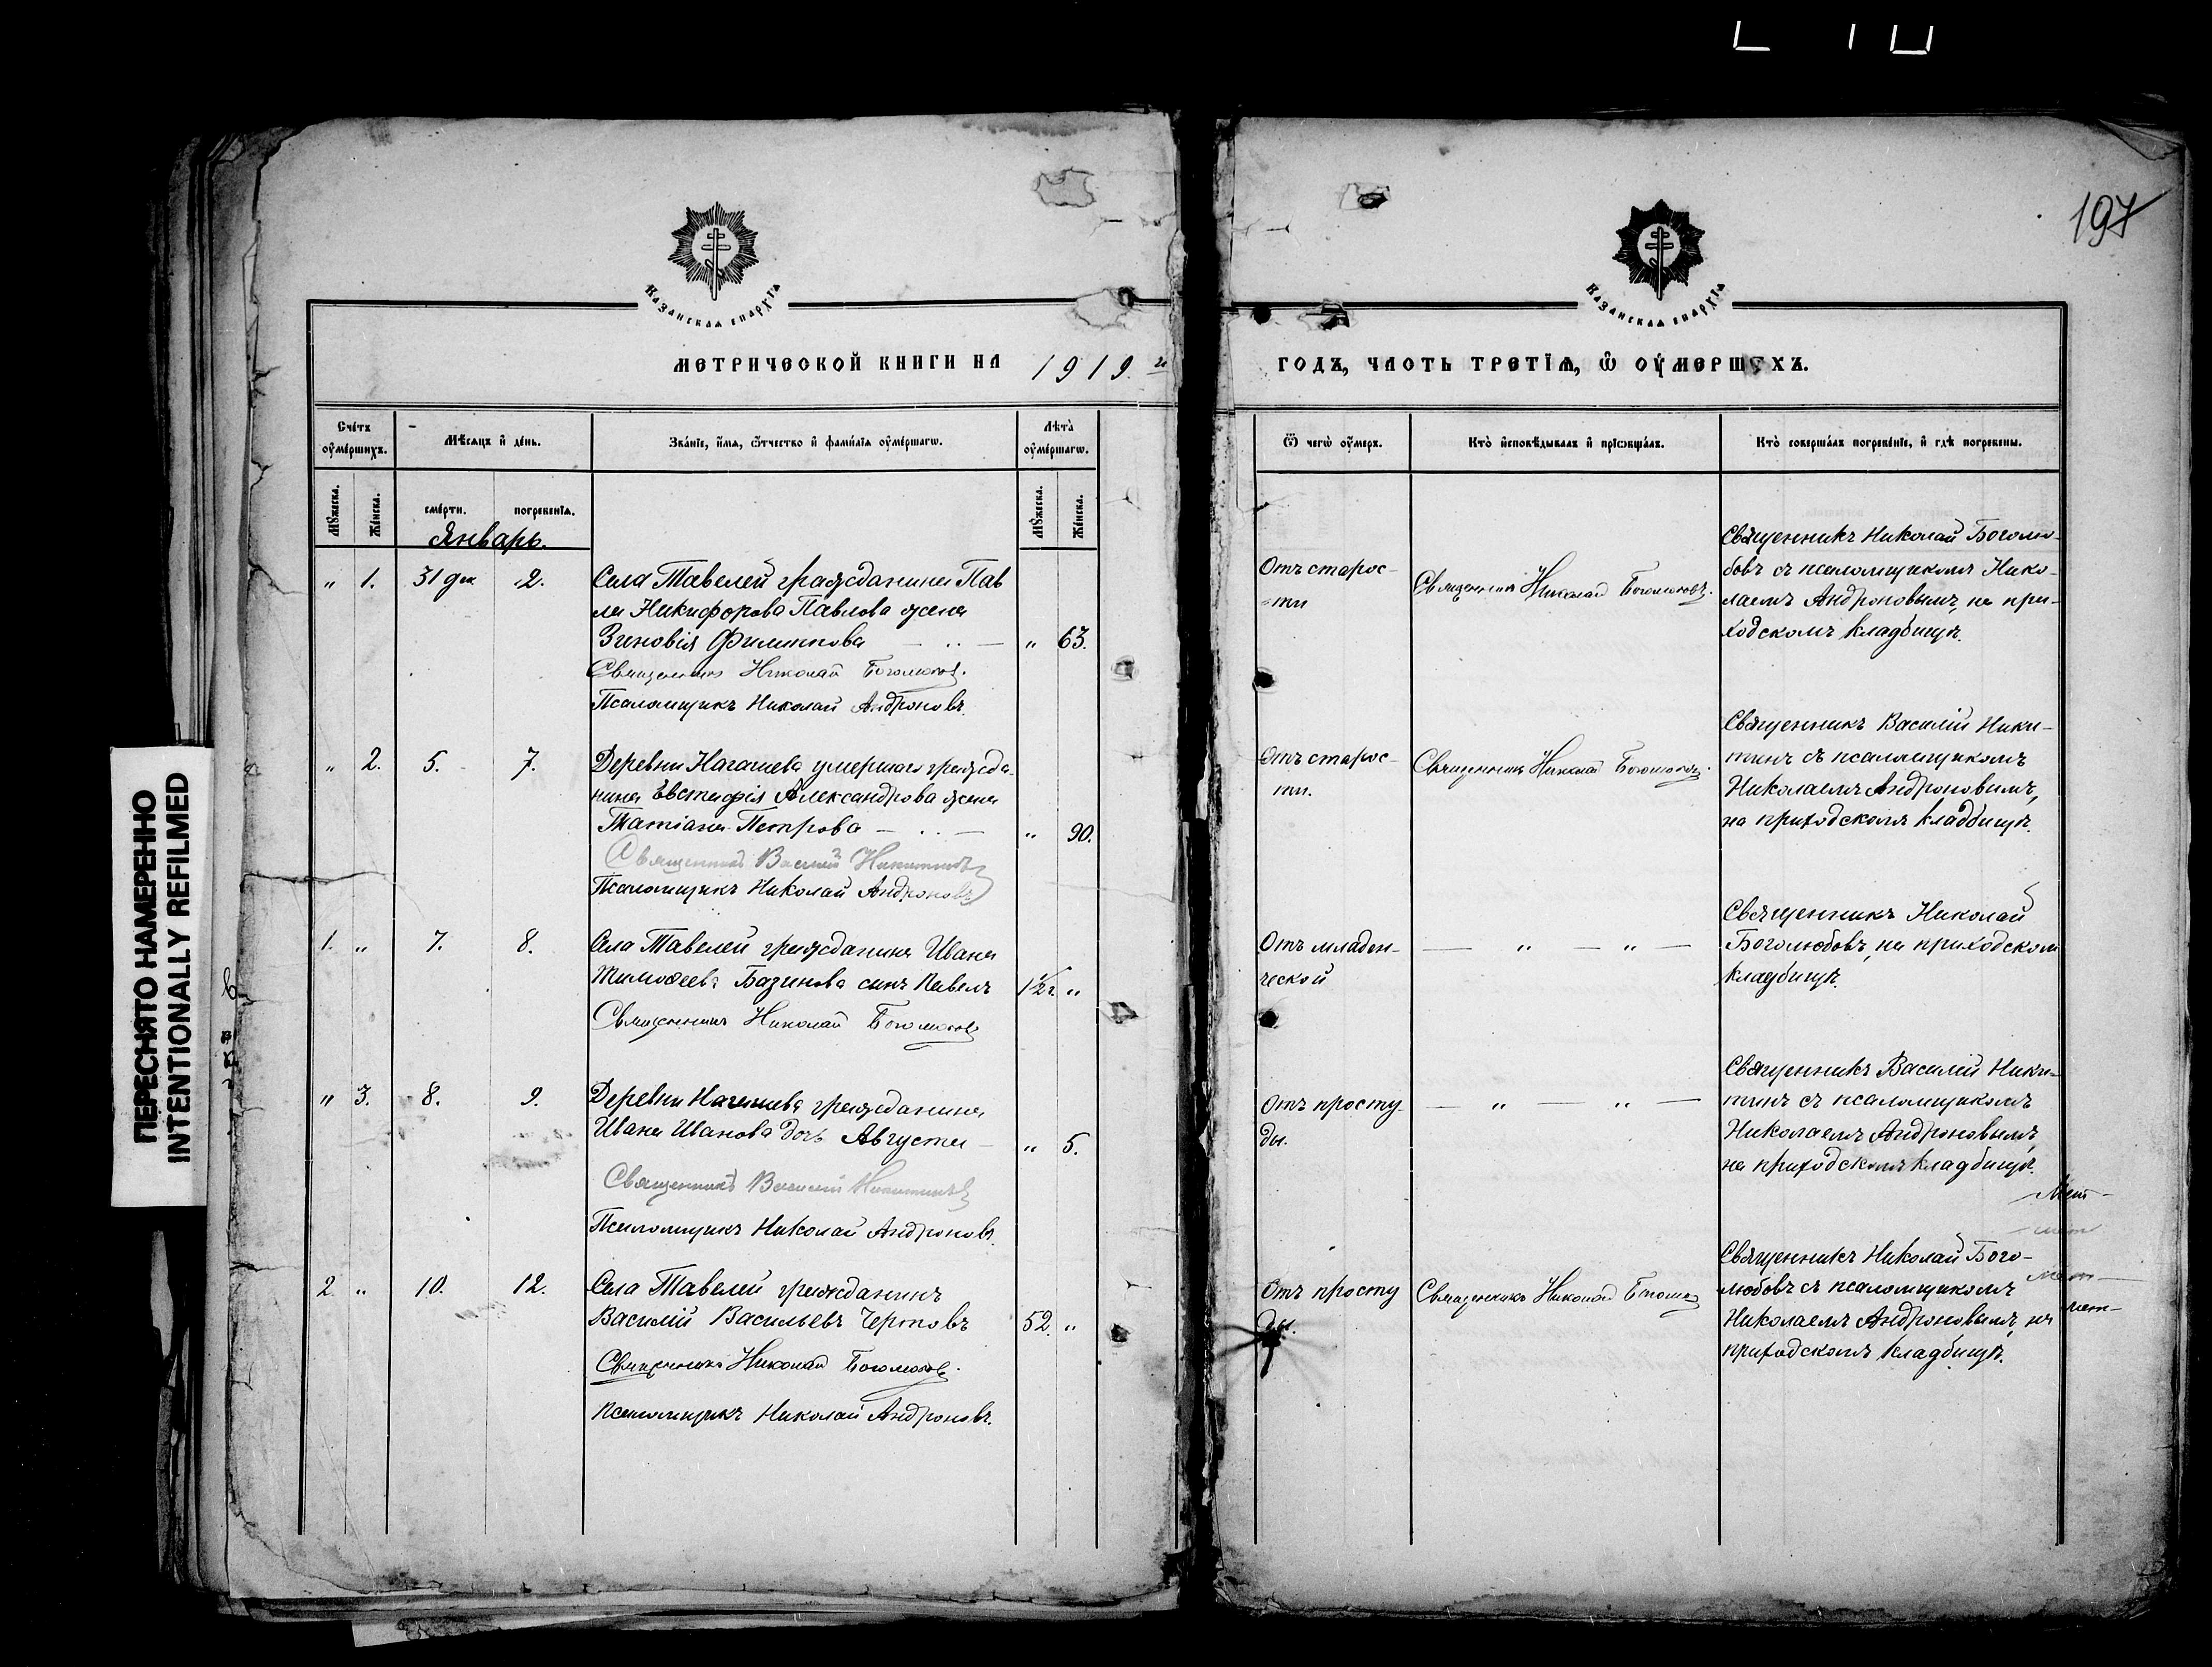 197
Казанская епархїа
Казанская епархїа
МЕТРИЧЕСКОЙ КНИГИ НА 1919 г.
ГОДЪ, ЧАСТЬ ТРЕТЇѦ, Ѽ ОУМЕРШИХЪ.
Счетъ оумершихъ.
Мѣсяцъ и день.
Званїе, имя, отчество и фамилїа оумершагѡ.
Лѣта оумершагѡ.
Ѿ чегѡ оумеръ.
Кто исповѣдывалъ и прїѡбщалъ.
Кто совершалъ погребенїе, и гдѣ погребены.
Мꙋжеска.
Женска.
смерти.
погребенїя.
Мꙋжеска.
Женска.
Январь.
" 1. 31 дек 2.
Села Тавелей гражданина Пав
ла Никифорова Павлова жена
Зиновія Филиппова — .. — " 63.
Священникъ Николай Боголюбов.
Псаломщикъ Николай Андроновъ.
Отъ старос-
ти
Священникъ Николай Боголюбовъ.
Священникъ Николай Боголю-
бовъ съ псаломщикомъ Нико-
лаемъ Андроновымъ, на при-
ходскомъ кладбищѣ.
" 2. 5. 7.
Деревни Нагашева умершаго гражда-
нина Евстафія Александрова жена
Татіана Петрова — .. — " 90.
Священникъ Василій Никитинъ
Псаломщикъ Николай Андроновъ
Отъ старос-
ти.
Священникъ Николай Боголюбов.
Священникъ Василій Ники-
тинъ съ псаломщикомъ
Николаемъ Андроновымъ,
на приходскомъ кладбищѣ.
1. " 7. 8.
Села Тавелей гражданина Ивана
Тимоѳеева Базинова сынъ Павелъ 1½г. "
Священникъ Николай Боголюбов
Отъ младен-
ческой
— " — " —
Священникъ Николай
Боголюбовъ, на приходском
кладбищѣ.
" 3. 8. 9.
Деревни Нагашева гражданина
Ивана Иванова дочь Августа — " 5.
Священникъ Василій Никитинъ
Псаломщикъ Николай Андроновъ.
Отъ просту-
ды.
— " — " —
Священникъ Василій Ники-
тинъ съ псаломщикомъ
Николаемъ Андроновымъ,
на приходскомъ кладбищѣ.
2. " 10. 12.
Села Тавелей гражданинъ
Василій Васильевъ Чертовъ 52. "
Священникъ Николай Боголюбов.
Псаломщикъ Николай Андроновъ.
Отъ просту
ды.
Священникъ Николай Боголюбов
Священникъ Николай Бого-
любовъ съ псаломщикомъ
Николаемъ Андроновымъ, на
приходскомъ кладбищѣ.
ПЕРЕСНЯТО НАМЕРЕННО
INTENTIONALLY REFILMED